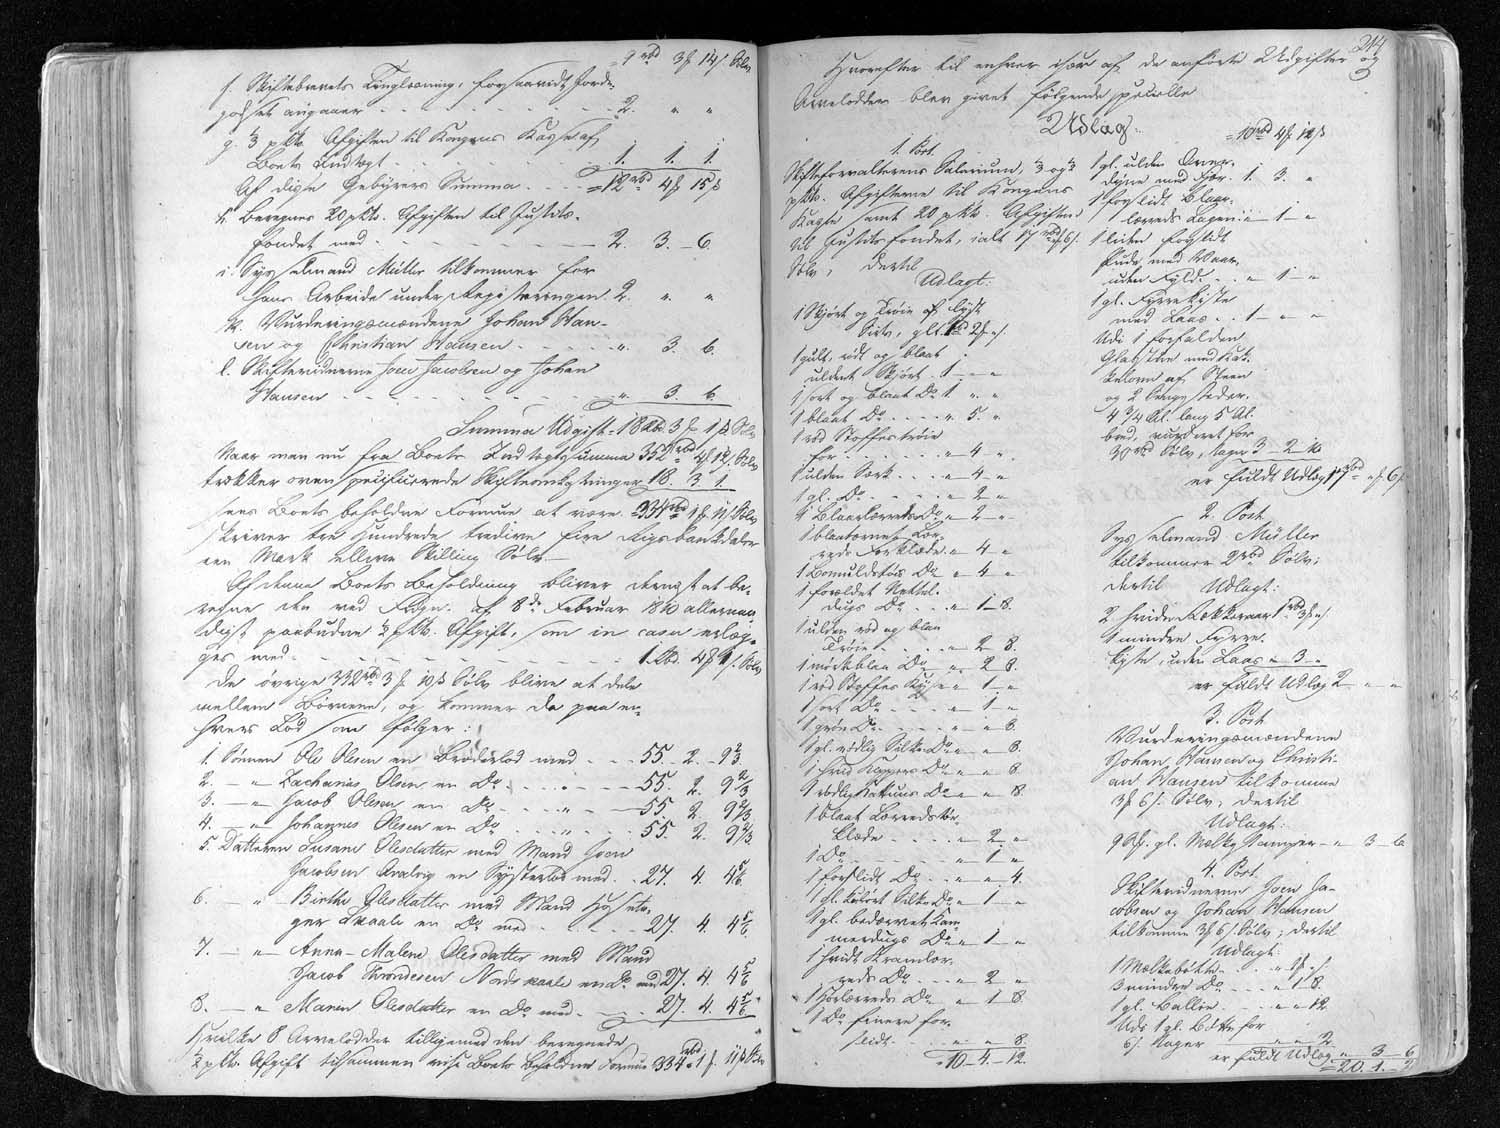 = 9 rbd 3 f 14 s. Sølv
f. Skiftebrevets Tinglæsning, forsaavidt Jorde-
godset angaaer - - - - - 2. „ „
g. 1/3 pCt. Afgiften til Kongens Kasse af
Boets Indtægt - - - - - 1. 1. 1.
Af disse Gebyrers Summa - - - = 12 rbd 4 f 15 s
h. Beregnes 20 pCto. Afgiften til Justits-
fondet med - - - - - 2. 3. 6.
i. Sysselmand Müller tilkommer for
hans Arbeide under Registeringen 2. „ „
k. Vurderingsmændene Johan Han-
sen og Christian Hansen - - - - „ 3. 6.
l. Skiftevidnerne Joen Jacobsen og Johan
Hansen - - - - - „ 3. 6.
Summa Udgift = 18 Rbd. 3 f 1 s. Sølv
Naar man nu fra Boets Indtægtssumma 352 rbd 4 f 12 s. Sølv
trækker ovenspecificerede Skifteomkostninger 18. 3. 1.
sees Boets beholdne Formue at være = 334 rbd 1 f 11 s Sølv
skriver tre hundrede tredive fire Rigsbankdaler
een Mark elleve Skilling Sølv.
Af denne Boets Beholdning bliver dernæst at be-
regne den ved Frdgn. af 8de Februar 1810 allernaa-
digst paabudne 1/2 pCto. Afgift, som in casu erlæg-
ges med - - - - - 1 Rbd. 4 f 1 s. Sølv
De øvrige 332 rbd 3 f 10 s Sølv blive at dele
mellem Børnene, og kommer da paa en-
hvers Lod som følger:
1. Sønnen Ole Olesen en Broderlod med - - - 55. 2. 9 2/3
2. — „ Zacharias Olsen en Do - - - 55. 2. 9 2/3
3. — „ Jacob Olesen en Do - - „ - - 55 2. 9 2/3
4. — „ Johannes Olesen en Do - - „ - - 55 2. 9 2/3.
5. Datteren Susane Olesdatter med Mand Joen
Jacobsen Qvalvig en Søsterlod med. . 27. 4. 4 5/6
6. — „ Birthe Olesdatter med Mand
Skaale en Do med - - - - 27. 4. 4 5/6.
7. — „ Anna Malene Olesdatter med Mand
Jacob Throndesen Nordskaale en Do med 27. 4. 4 5/6
8. — „ Maren Olesdatter en Do med - - - 27. 4. 4 5/6.
hvilke 8 Arvelodder tilligemed den beregnede
1/2 pCto. Afgift tilsammen vise Boets beholdne Formue 334 rbd 1 f. 11 s Sølv
214
Hvorefter til enhver især af de anførte Udgifter og
Arvelodder blev givet følgende specielle
Udlæg:
1. Post.
Skifteforvalterens Salarium, 1/3 og 1/2
pCto. Afgifterne til Kongens
Kasse samt 20 pCto. Afgiften
til Justitsfondet, ialt 17 rbd „ f 6 s.
Sølv, dertil
Udlagt:
1 Skjørt og Trøie af lyst
Sirts, glt. 1 rbd 2 f „ s.
1 gult, rødt og blaat
uldent Skjørt. 1 - „ - „
1 sort og blaat Do 1. „ „
1 blaat Do . . . . „ 5. „
1 rød Stoffestrøie
for . . . . . „ 4 - „
1 ulden Særk . . . „ 4 - „
1 gl. Do . . . . . „ 2 - „
1 Blaarlærreds Do „ 2 - „
rede Forklæde „ 4 „
1 Bomuldstøis Do „ 4 „
1 forældet Nettel-
dugs Do . . . „ 1 - 8.
1 ulden rød og blaa
Trøie . . . . „ 2 8.
1 mørkblaa Do „ 2 8.
1 rød Stoffes Kyse „ 1 - „
1 sort Do . . . „ 1 - „
1 grøn Do . . . „ „ 8.
1 gl. rødlig Silke Do „ „ 8.
1 hvid Do „ „ 8
1 rødlig Kattuns Do „ „ 8.
1 blaat Lærredstør-
klæde . . . . „ 2 - „
1 Do . . . . . „ 1 - „
1 forslidt Do . . „ „ 4.
1 gl. Silke Do „ 1 - „
1 gl. bedærvet Kam-
merdugs Do „ 1 - „
1 hvidt Kramlær-
reds Do . . „ 2 - „
1 Hørlærreds Do „ 1 8.
1 Do finere for-
slidt . . . „ „ 8.
= 10 - 4 - 12.
= 10 rbd 4 f 12 s
1 gl. ulden Over-
dyne med Fjær. 1. 3. „
1 forslidt Blaar-
lærreds Lagen „ 1 - „
1 liden forslidt
Pude med Vaar,
uden Fyld . . „ 1 - „
1 gl. Fyrrekiste
med Laas . . 1 - „ - „
Udi 1 forfalden
Glasstue med Kak-
kelovn af Steen
og 2 Sengesteder.
4 3/4 Al. lang 5 Al.
bred, vurderet for
90 rbd Sølv, tager 3 - 2 - 10
er fuldt Udlæg 17 rbd „ f 6 s.
2. Post
Sysselmand Müller
tilkommer 2 rbd Sølv;
dertil Udlagt:
2 hvide 1 rbd 3 f „ s.
1 mindre Fyrre-
kiste, uden Laas „ 3 - „
er fuldt Udlæg 2 - „ - „
3. Post
Vurderingsmændene
Johan Hansen og Christi-
an Hansen tilkomme
3 f 6 s. Sølv, dertil
Udlagt:
9 gl. „ 3 - 6
4. Post.
Skiftevidnerne Joen Ja-
cobsen og Johan Hansen
tilkomme 3 f 6 s. Sølv; dertil
Udlagt:
1 Mælkebøtte . . „ 1 f „ s.
3 mindre Do . . . „ 1 8.
1 gl. Ballie . . . „ „ 12
Udi 1 gl. Bøtte for
6 s. tager „ „ 2
er fuldt Udlæg „ 3 - 6
= 20. 1 - 2